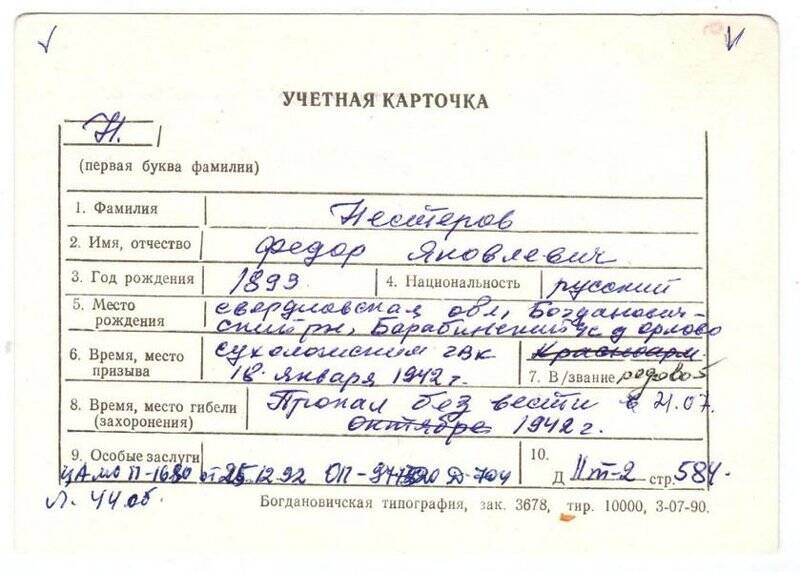 УЧЕТНАЯ КАРТОЧКА
Н.
(первая буква фамилии)
1. Фамилия Нестеров
2. Имя, отчество Федор Яковлевич
3. Год рождения 1893 4. Национальность русский
5. Место рождения свердловская обл, Богданович-
ский рн, Барабинский с д орлово
6. Время, место призыва сухоложским гвк
18 января 1942 г. Красноарм.
7. В/звание рядовой
8. Время, место гибели (захоронения) Пропал без вести с 21.07.
октябре 1942 г.
9. Особые заслуги 10.
ЦАМО П-1680 от 25.12.92 ОП- Д-704 Д IIт-2 стр. 584.
Л. 44 об.
Богдановичская типография, зак. 3678, тир. 10000, 3-07-90.